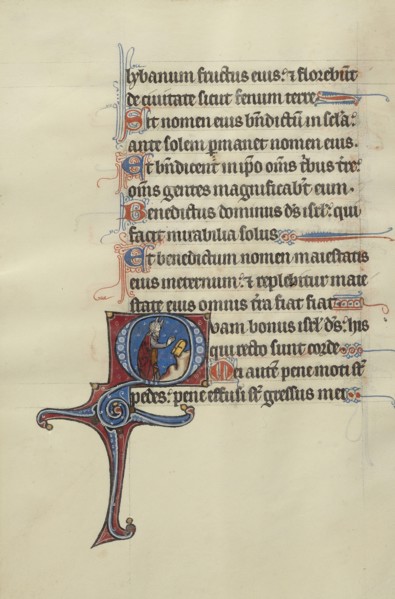 lybanum fructus eius: ⁊ florebūt
de ciuitate sicut fenum terre
Sit nomen eius bn̄dictū in scl̄a:
ante solem ꝑmanet nomen eius.
Et bn̄dicent in ip̄o om̄s tb̄us tr̄e:
om̄s gentes magnificabt̄ eum.
Benedictus dominus d̄s isrl̄: qui
facit mirabilia solus
Et benedictum nomen maiestatis
eius ineternum: ⁊ replebitur maie
state eius omnis tr̄a fiat fiat
Quam bonus isrl̄ d̄s: his
qui recto sunt corde
Mei autē pene moti st̄
pedes: pene effusi st̄ gressus mei